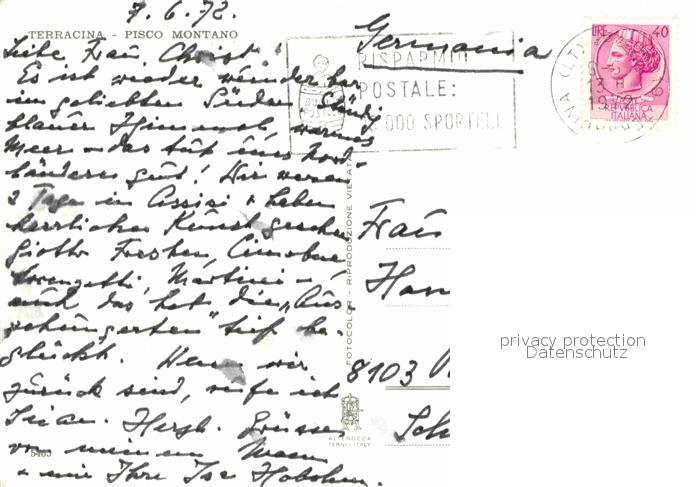 7.6.72.
TERRACINA - PISCO MONTANO
Liebe Frau Christ!
Es ist wieder wunderbar
im geliebten Süden. Ständig
blauer Himmel, warmes
Meer - das tut uns Nord-
ländern gut! Wir waren
2 Tage in Assisi & haben
herrliche Kunst gesehen
Giotto Fresken, Cimabue
Lorenzetti, Martini -
auch das hat die
tief be-
glückt. Wenn wir
zurück sind, rufe ich
Sie an. Herzl. Grüsse
von meinem Mann
& wie Ihre Isa
5405
Germania
RISPARMIO
POSTALE:
000 SPORTELLI
BUONI
POSTALI
LIRE 40
REPVBBLICA
ITALIANA
FOTOCOLOR - RIPRODUZIONE VIETATA
Frau
Han
8103
Sch
ALTEROCCA
TERNI - ITALY
privacy protection
Datenschutz